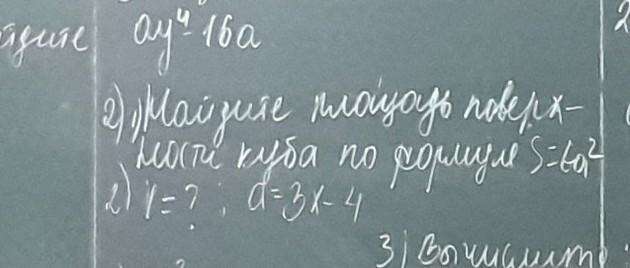 ау⁴-16а
2) 1) Найдите площадь поверх-
ности куба по формуле S=6a²
2) V=? ; a=3x-4
3) Вычислите